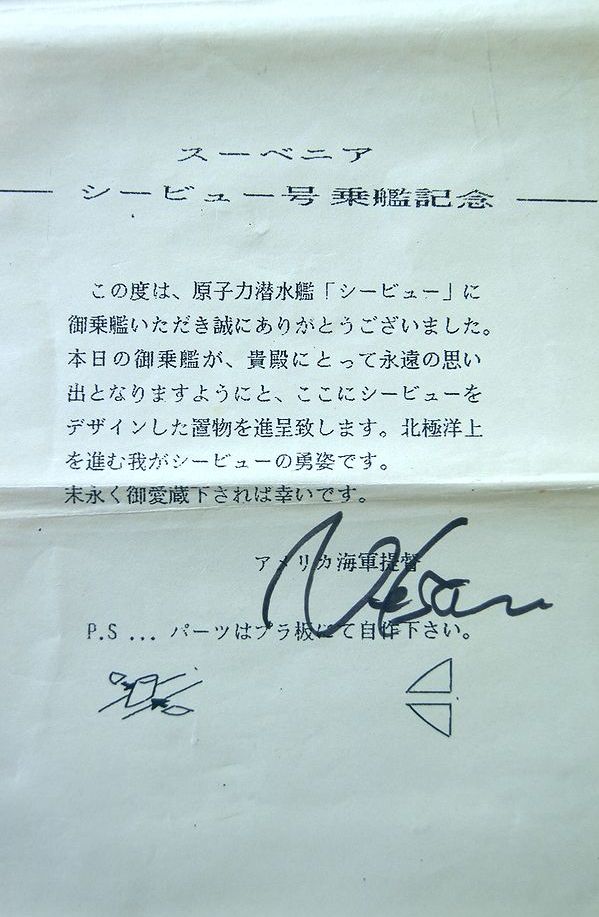 スーベニア
シービュー号乗艦記念
この度は、原子力潜水艦「シービュー」に
御乗艦いただき誠にありがとうございました。
本日の御乗艦が、貴殿にとって永遠の思い
出となりますようにと、ここにシービューを
デザインした置物を進呈致します。北極洋上
を進む我がシービューの勇姿です。
末永く御愛蔵下されば幸いです。
アメリカ海軍提督
P.S ... パーツはプラ板にて自作下さい。